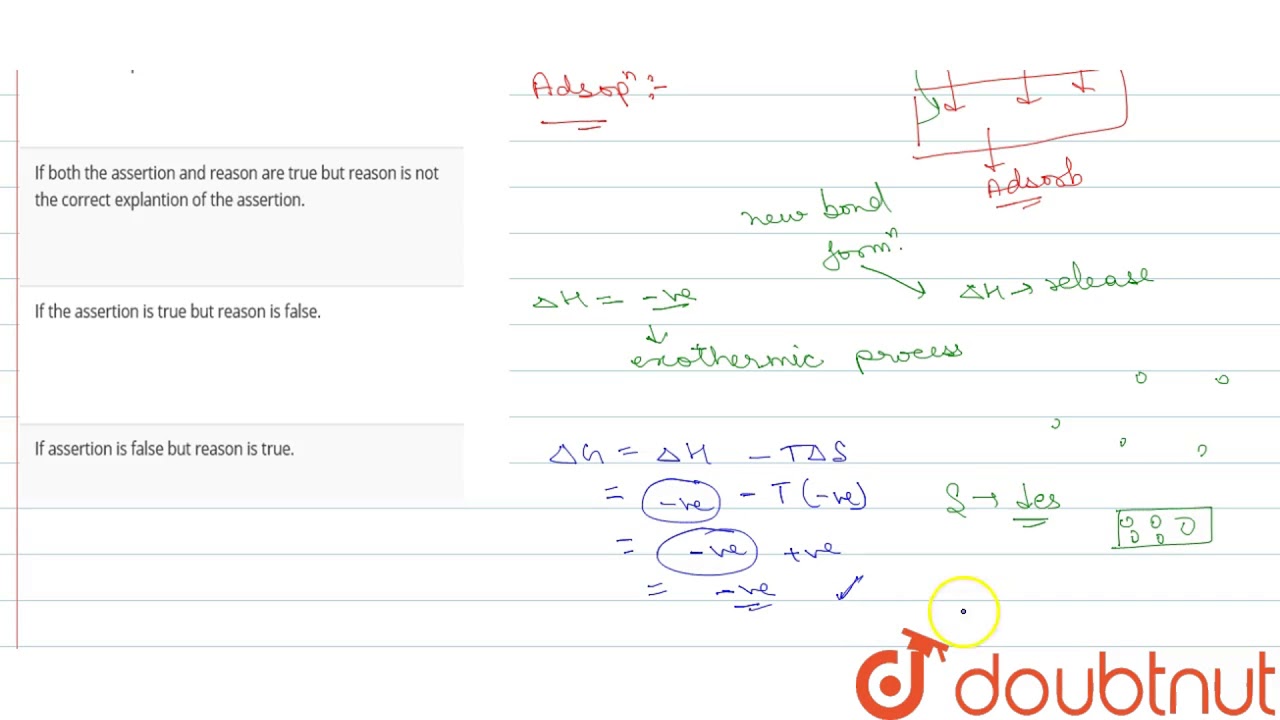 Adsopⁿ :-
Adsorb
If both the assertion and reason are true but reason is not
the correct explantion of the assertion.
new bond
formⁿ.
ΔH → release
ΔH = -ve
If the assertion is true but reason is false.
exothermic process
If assertion is false but reason is true.
ΔG = ΔH - TΔS
= -ve - T(-ve)
S → des
= -ve +ve
= -ve ✓
doubtnut